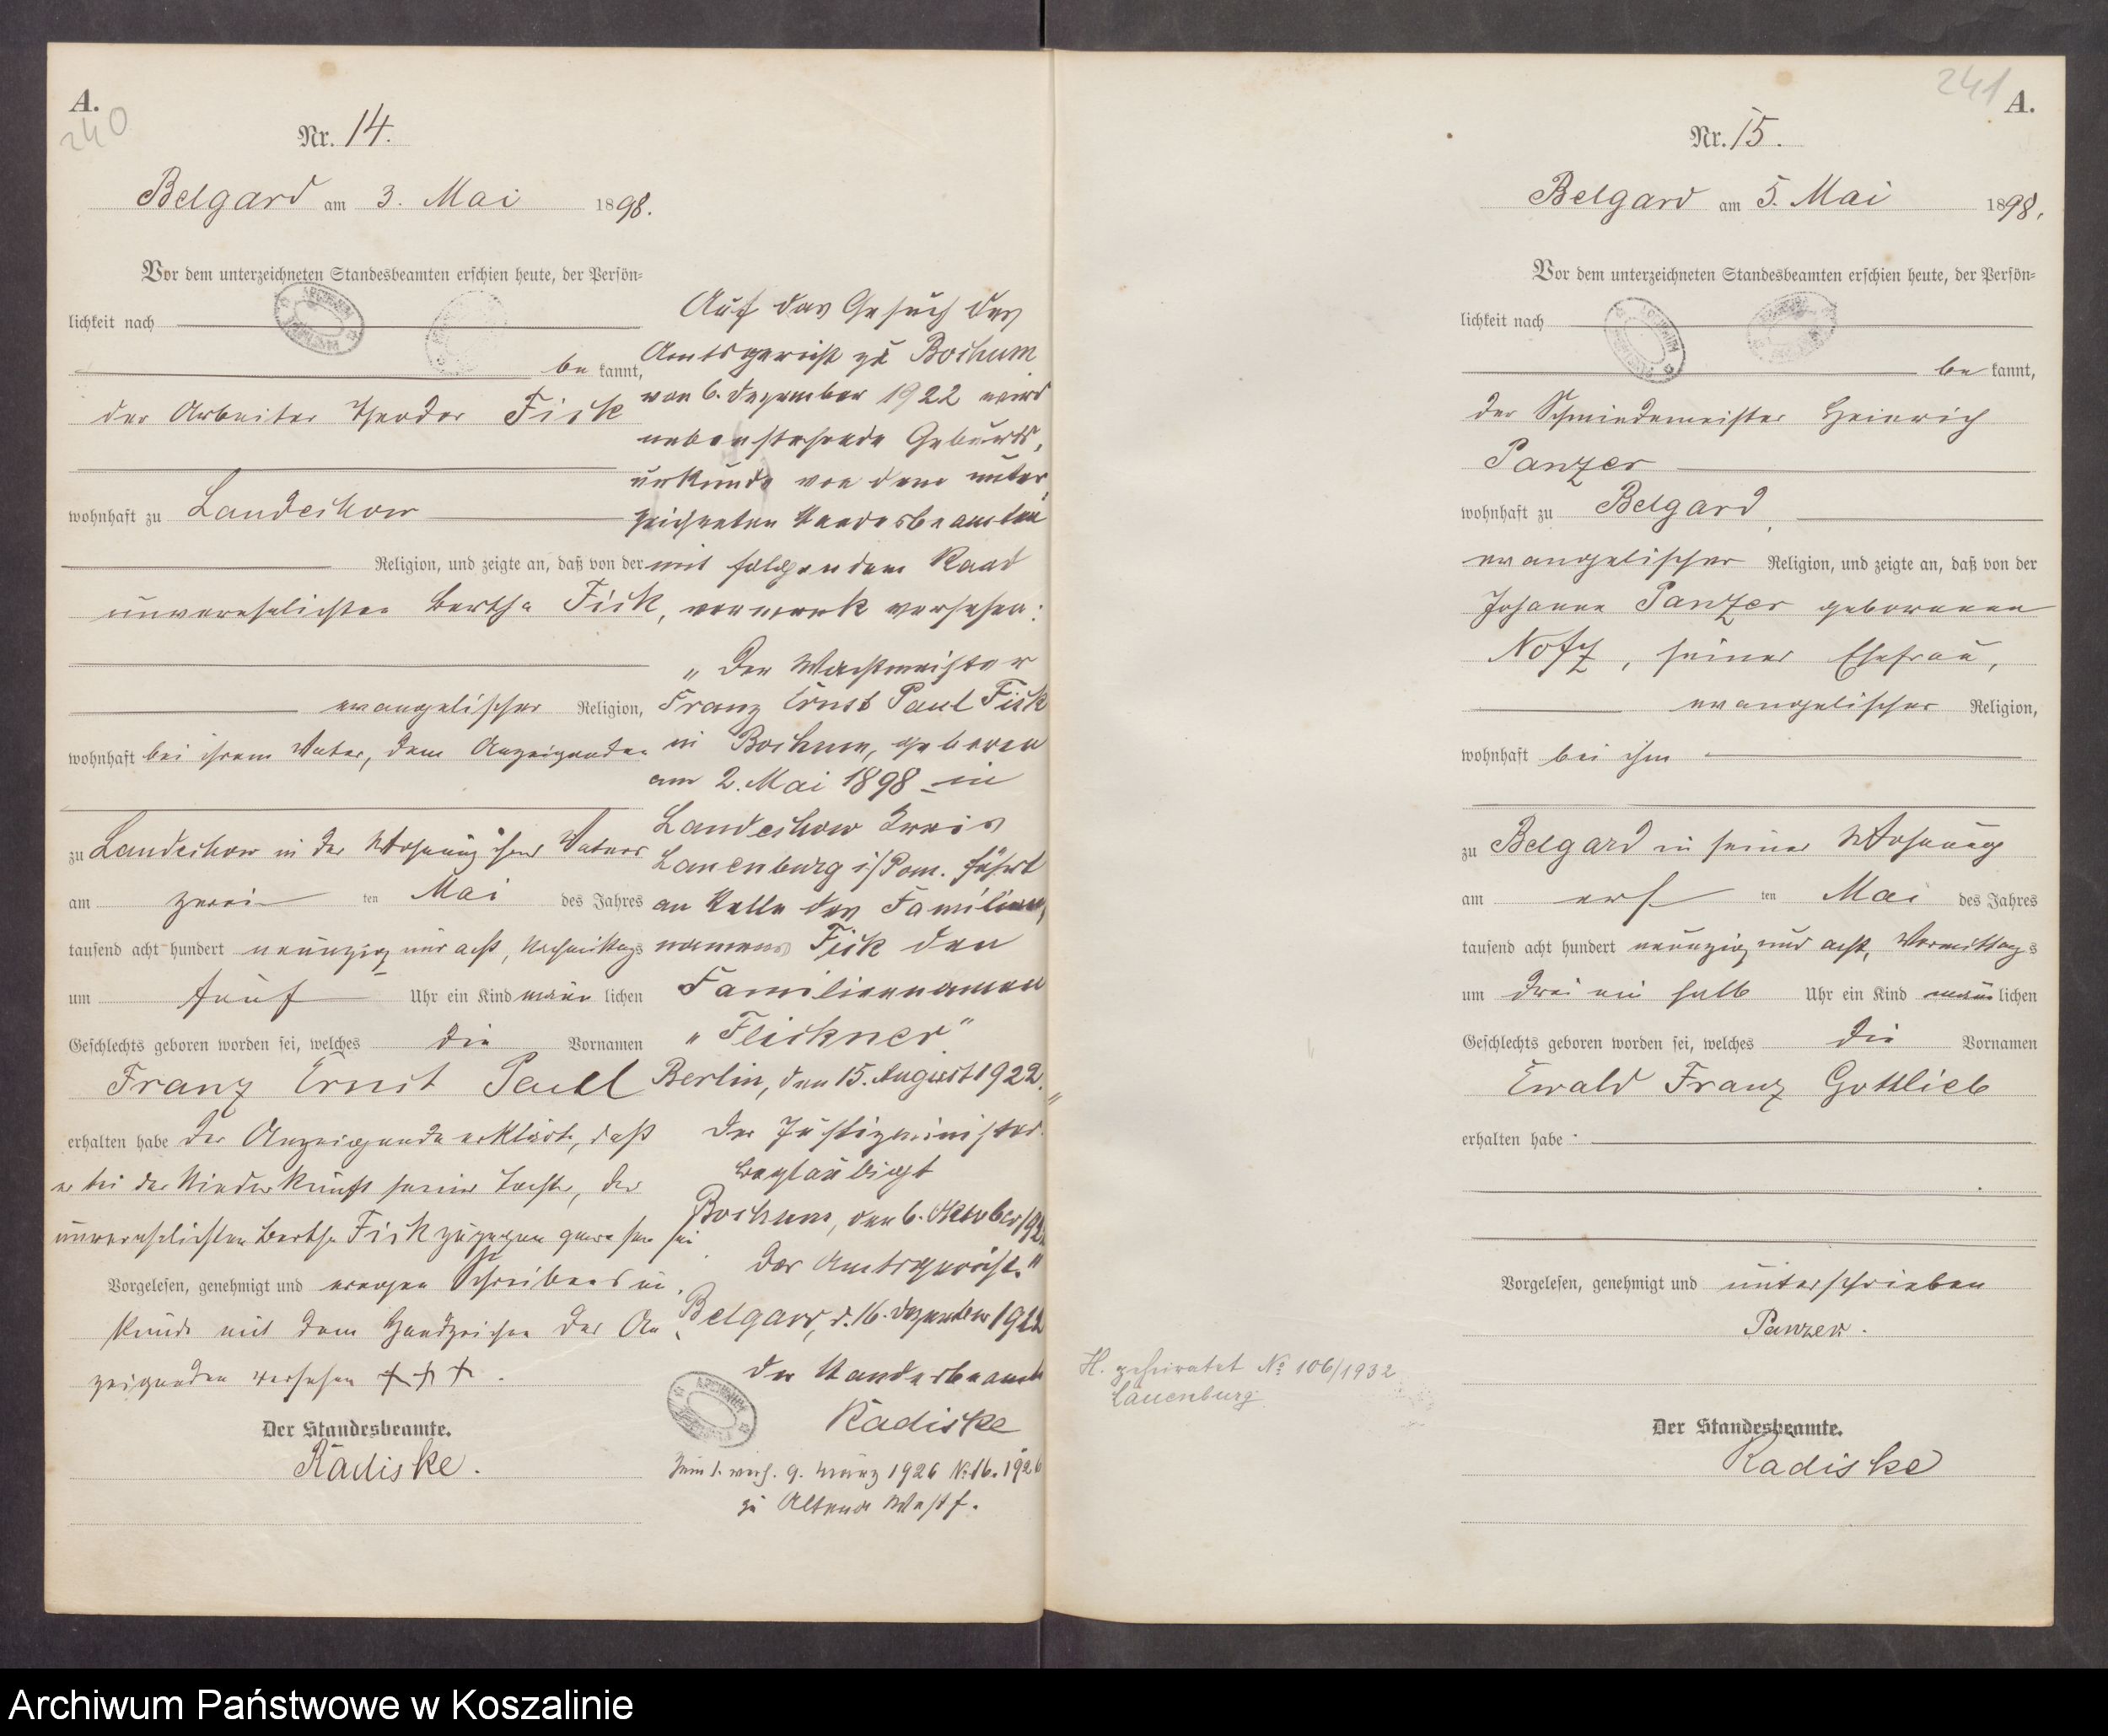 A.
240
Nr. 14.
Belgard am 3. Mai 1898.
Vor dem unterzeichneten Standesbeamten erschien heute, der Persön=
lichkeit nach
be kannt,
der Arbeiter Theodor Fick
wohnhaft zu Landechow
Religion, und zeigte an, daß von der
unverehelichten Bertha Fick,
evangelischer Religion,
wohnhaft bei ihrem Vater, dem Anzeigenden
zu Landechow in der Wohnung ihres Vaters
am zwei ten Mai des Jahres
tausend acht hundert neunzig und acht, Nachmittags
um fünf Uhr ein Kind männ lichen
Geschlechts geboren worden sei, welches die Vornamen
Franz Ernst Paul
erhalten habe Der Anzeigende erklärte, daß
er bei der Niederkunft seiner Tochter, der
unverehelichten Bertha Fick zugegen gewesen sei
Vorgelesen, genehmigt und wegen Schreibens un
kunde mit dem Handzeichen des An
zeigenden versehen + + + .
Der Standesbeamte.
Radiske.
Auf das Gesuch des
Amtsgericht zu Bochum
von 6. Dezember 1922 wird
nebenstehende Geburts,
urkunde von dem unter
zeichneten Standesbeamten
mit folgendem Rand
vermerk versehen:
„Der Wachtmeister
Franz Ernst Paul Fick
in Bochum, geboren
am 2. Mai 1898 in
Landechow Kreis
Lauenburg i/Pom. führt
an Stelle des Familien,
namens Fick den
Familiennamen
„Flickner“
Berlin, den 15. August 1922.
Der Justizminister.
Beglaubigt
Bochum, den 6. Oktober 192
Das Amtsgericht.“
Belgard, d. 16. Dezember 1922
Der Standesbeamte
Radiske
9. März 1926 No 16. 1926
zu Altena Westf.
241
A.
Nr. 15.
Belgard am 5. Mai 1898.
Vor dem unterzeichneten Standesbeamten erschien heute, der Persön=
lichkeit nach
be kannt,
der Schmiedemeister Heinrich
Panzer
wohnhaft zu Belgard,
evangelischer Religion, und zeigte an, daß von der
Johanna Panzer geborenen
Notz, seiner Ehefrau,
evangelischer Religion,
wohnhaft bei ihm
zu Belgard in seiner Wohnung
am ers ten Mai des Jahres
tausend acht hundert neunzig und acht, Vormittags
um drei ein halb Uhr ein Kind männ lichen
Geschlechts geboren worden sei, welches die Vornamen
Ewald Franz Gottlieb
erhalten habe.
Vorgelesen, genehmigt und unterschrieben
Panzer.
Der Standesbeamte.
Radiske
H. geheiratet No 106/1932
Lauenburg
Archiwum Państwowe w Koszalinie